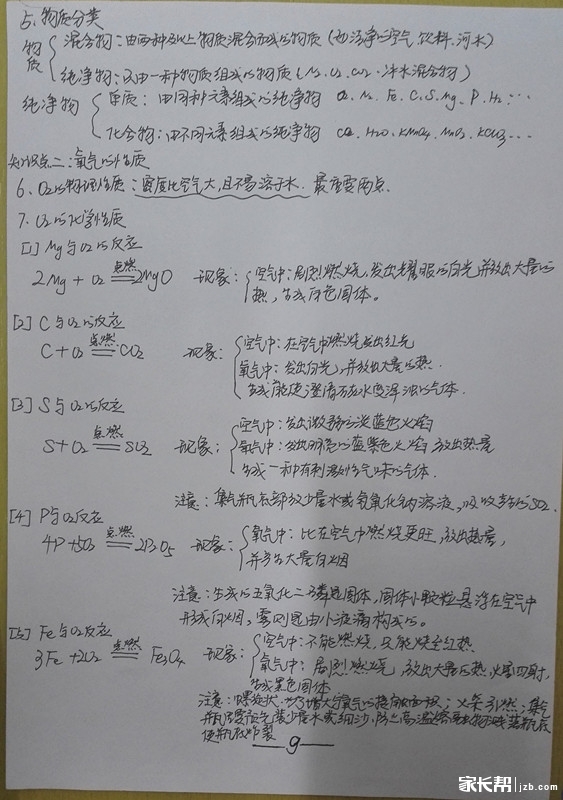 5、物质分类
物质 混合物：由两种及以上物质混合而成的物质（如洁净的空气、饮料、河水）
纯净物：只由一种物质组成的物质（N₂、O₂、CO₂、冰水混合物）
纯净物 单质：由同种元素组成的纯净物 O₂、N₂、Fe、C、S、Mg、P、H₂…
化合物：由不同元素组成的纯净物 CO₂、H₂O、KMnO₄、MnO₂、KClO₃…
知识点二：氧气的性质
6、O₂的物理性质：密度比空气大，且不易溶于水。最重要两点
7、O₂的化学性质
[1] Mg与O₂的反应
2Mg + O₂ 点燃 2MgO 现象：空气中：剧烈燃烧，发出耀眼的白光并放出大量的
热，生成白色固体。
[2] C与O₂的反应
C+O₂ 点燃 CO₂ 现象：空气中：在空气中燃烧发出红光
氧气中：发出白光，并放出大量的热
生成能使澄清石灰水变浑浊的气体.
[3] S与O₂的反应
S+O₂ 点燃 SO₂ 现象：空气中：发出微弱的淡蓝色火焰
氧气中：发出明亮的蓝紫色火焰 放出热量
生成一种有刺激性气味的气体.
注意：集气瓶底部放少量水或氢氧化钠溶液，吸收SO₂.
[4] P与O₂反应
4P+5O₂ 点燃 2P₂O₅ 现象：氧气中：比在空气中燃烧更旺，放出热量，
并产生大量白烟
注意：生成的五氧化二磷是固体，固体小颗粒悬浮在空气中
形成白烟，雾则是由小液滴构成的.
[5] Fe与O₂反应
3Fe+2O₂ 点燃 Fe₃O₄ 现象：空气中：不能燃烧，只能烧至红热
氧气中：剧烈燃烧，放出大量的热，火星四射，
生成黑色固体
注意：螺旋状：为了增大与氧气的接触面积；火柴引燃；集气
瓶要预先装少量水或细沙，防止高温熔融物溅落瓶底
使瓶底炸裂
—9—
家长帮 jzb.com